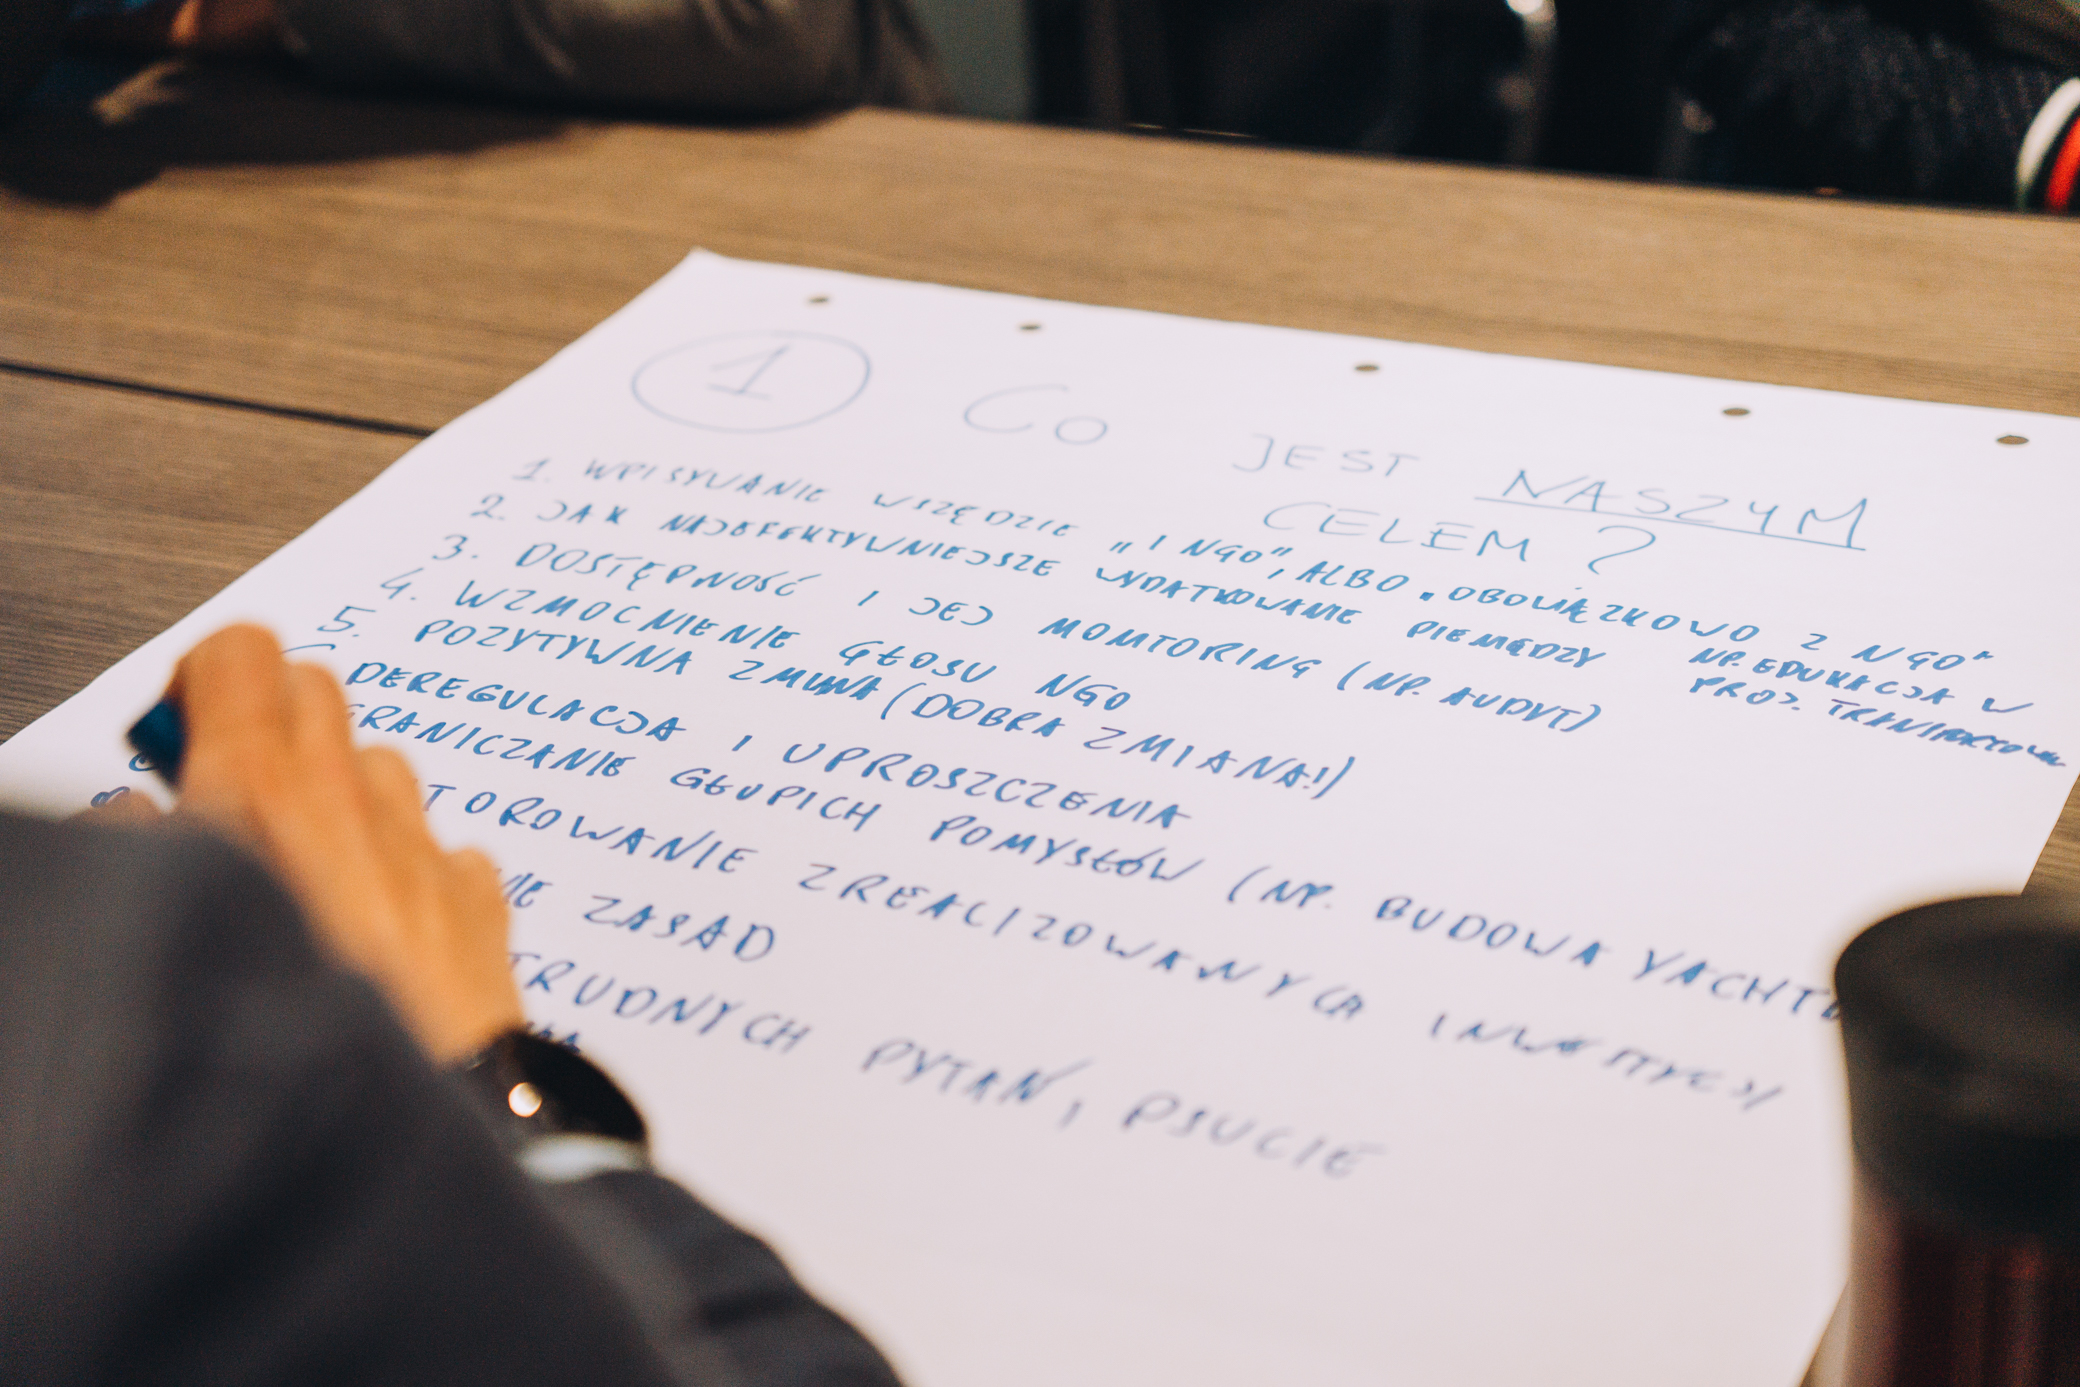 1 CO JEST NASZYM
CELEM?
1. WPISYWANIE WSZĘDZIE „I NGO”, ALBO „OBOWIĄZKOWO Z NGO”
2. JAK NAJEFEKTYWNIEJSZE WYDATKOWANIE PIENIĘDZY NP. EDUKACJA W
PROJ. TRANSPORTOWYM
3. DOSTĘPNOŚĆ I JEJ MONITORING (NP. AUDYT)
4. WZMOCNIENIE GŁOSU NGO
5. POZYTYWNA ZMIANA (DOBRA ZMIANA!)
DEREGULACJA I UPROSZCZENIA
GRANICZANIE GŁUPICH POMYSŁÓW (NP. BUDOWA YACHT
TOROWANIE ZREALIZOWANYCH INWESTYCJI
NIE ZASAD
TRUDNYCH PYTAŃ, PSUCIE